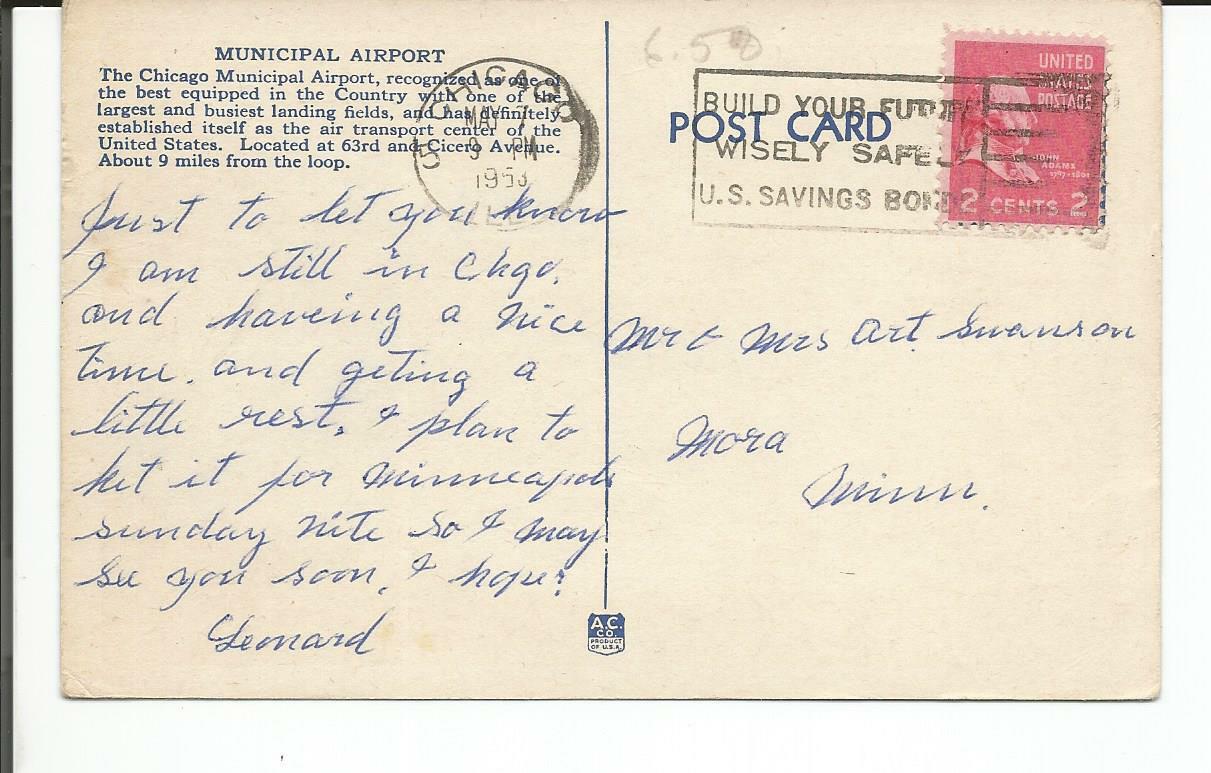 MUNICIPAL AIRPORT
The Chicago Municipal Airport, recognized as one of
the best equipped in the Country with one of the
largest and busiest landing fields, and has definitely
established itself as the air transport center of the
United States. Located at 63rd and Cicero Avenue.
About 9 miles from the loop.
Just to let you know
I am still in Chgo.
and haveing a nice
time. and geting a
little rest. I plan to
het it for Minneapols
sunday nite so I may
see you soon, I hope?
Leonard
CHICAGO
5
1953
ILL
A.C.
CO.
PRODUCT
OF U.S.A.
6.50
POST CARD
BUILD YOUR FUTURE
WISELY SAFELY
U.S. SAVINGS BONDS
UNITED
STATES
POSTAGE
JOHN
ADAMS
1797-1801
2 CENTS 2
Mr & Mrs Art. Swanson
Mora
Minn.